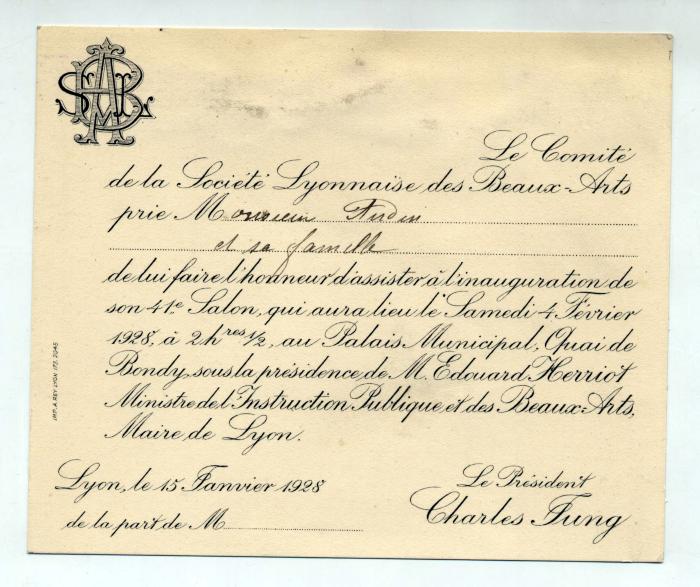 SLBA
Le Comité
de la Société Lyonnaise des Beaux-Arts
prie Monsieur
et sa famille
de lui faire l'honneur d'assister à l'inauguration de
son 41e Salon, qui aura lieu le Samedi 4 Février
1928, à 2 hres 1/2, au Palais Municipal, Quai de
Bondy, sous la présidence de M. Edouard Herriot
Ministre de l'Instruction Publique et des Beaux-Arts,
Maire de Lyon.
Lyon, le 15 Janvier 1928
de la part de M
Le Président
Charles Jung
IMP. A. REY LYON